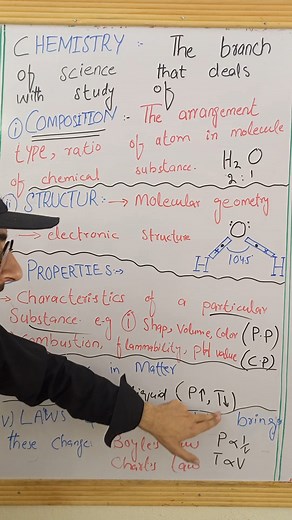 CHEMISTRY :- The branch
of science that deals
with study of
① COMPOSITION :- The arrangement
type, ratio of atom in molecule
of chemical substance.
H₂O
2:1
STRUCTUR :- → Molecular geometry
→ electronic structure
O
H H
1045
PROPERTIES:→
→ Characteristics of a particular
Substance. e.g ① Shap, Volume, Color (P.P)
Combustion, flammability, pH value (C.P)
in Matter
liquid (P↑, T↓)
V) LAWS bring
these change. Boyle's law P∝1/V
Charl's law T∝V